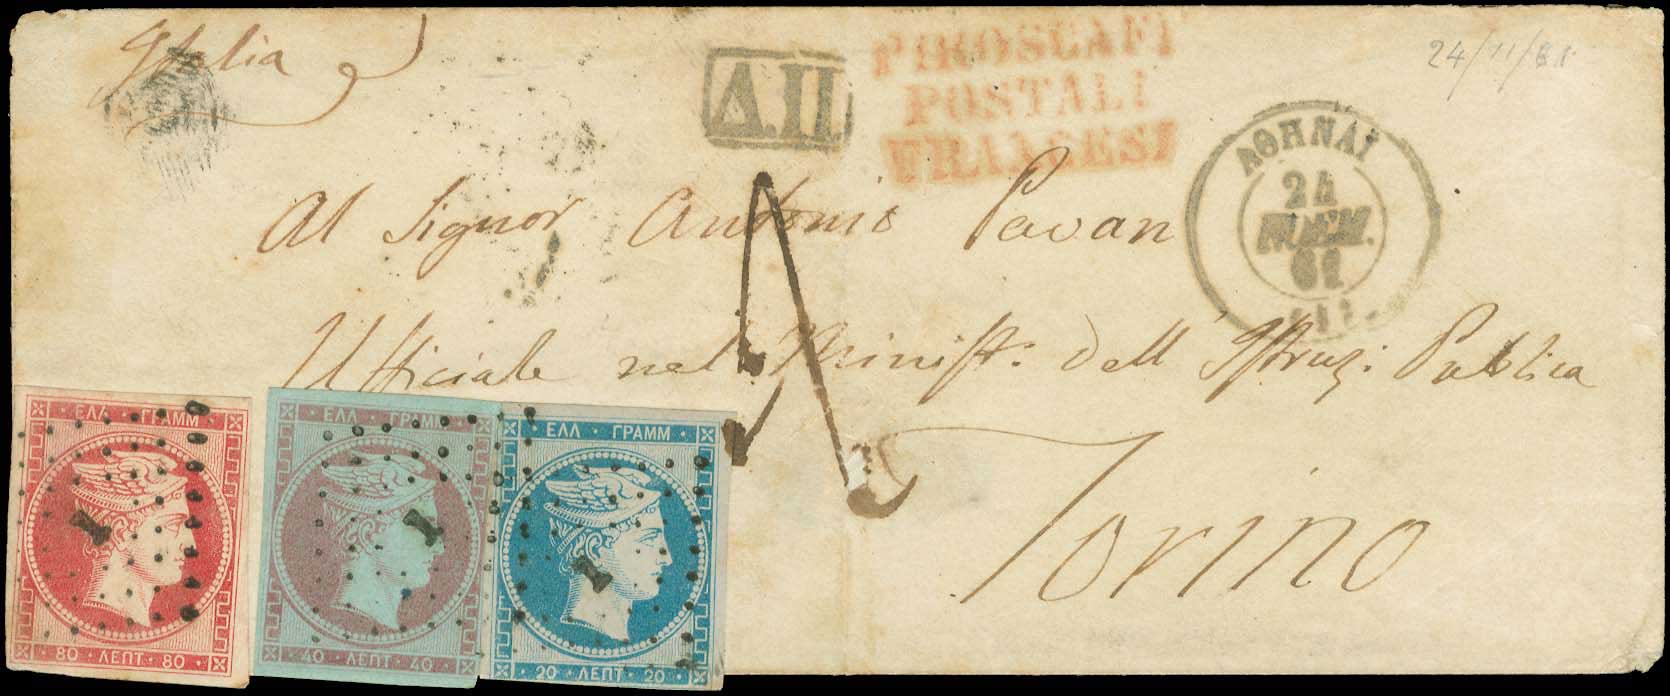 Italia
Δ.Π.
PIROSCAFI
POSTALI
FRANCESI
24/11/61
ΑΘΗΝΑΙ
24
ΝΟΕΜ.
61
Al Signor Antonio Pavan
Ufficiale nel Minist: dell' Istruz: Publica
Torino
ΕΛΛ · ΓΡΑΜΜ
1
80 · ΛΕΠΤ · 80
ΕΛΛ · ΓΡΑΜΜ
1
40 · ΛΕΠΤ · 40
ΕΛΛ · ΓΡΑΜΜ
1
20 · ΛΕΠΤ · 20